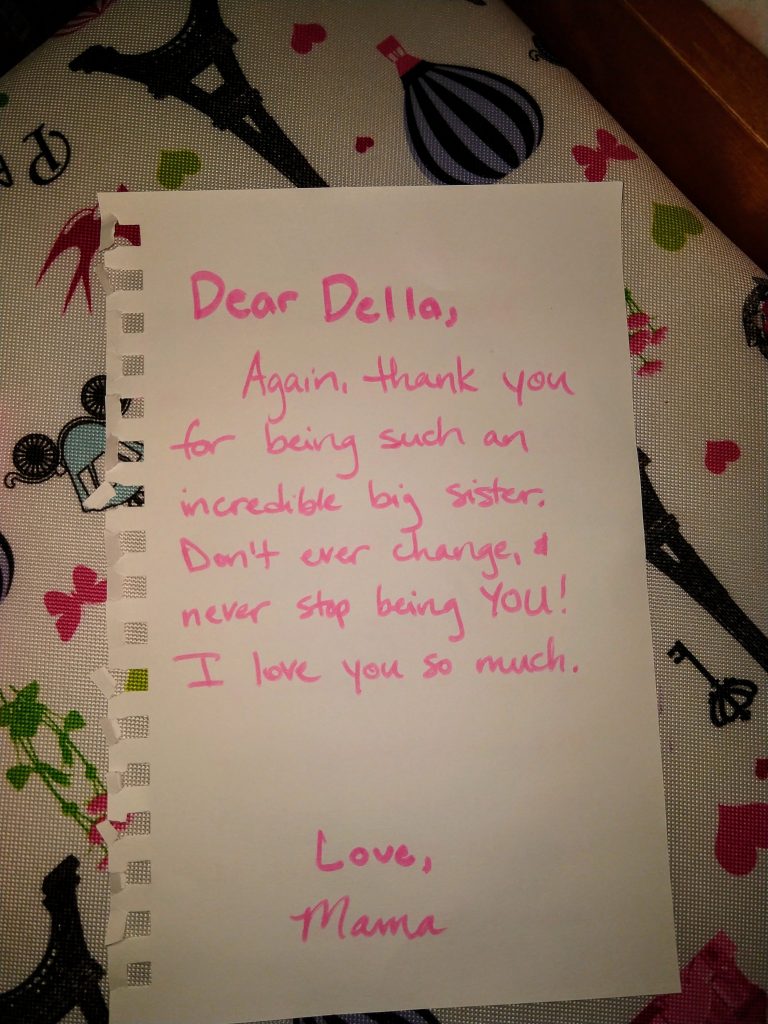 PA
Dear Della,
Again, thank you
for being such an
incredible big sister.
Don't ever change, &
never stop being YOU!
I love you so much.
Love,
Mama